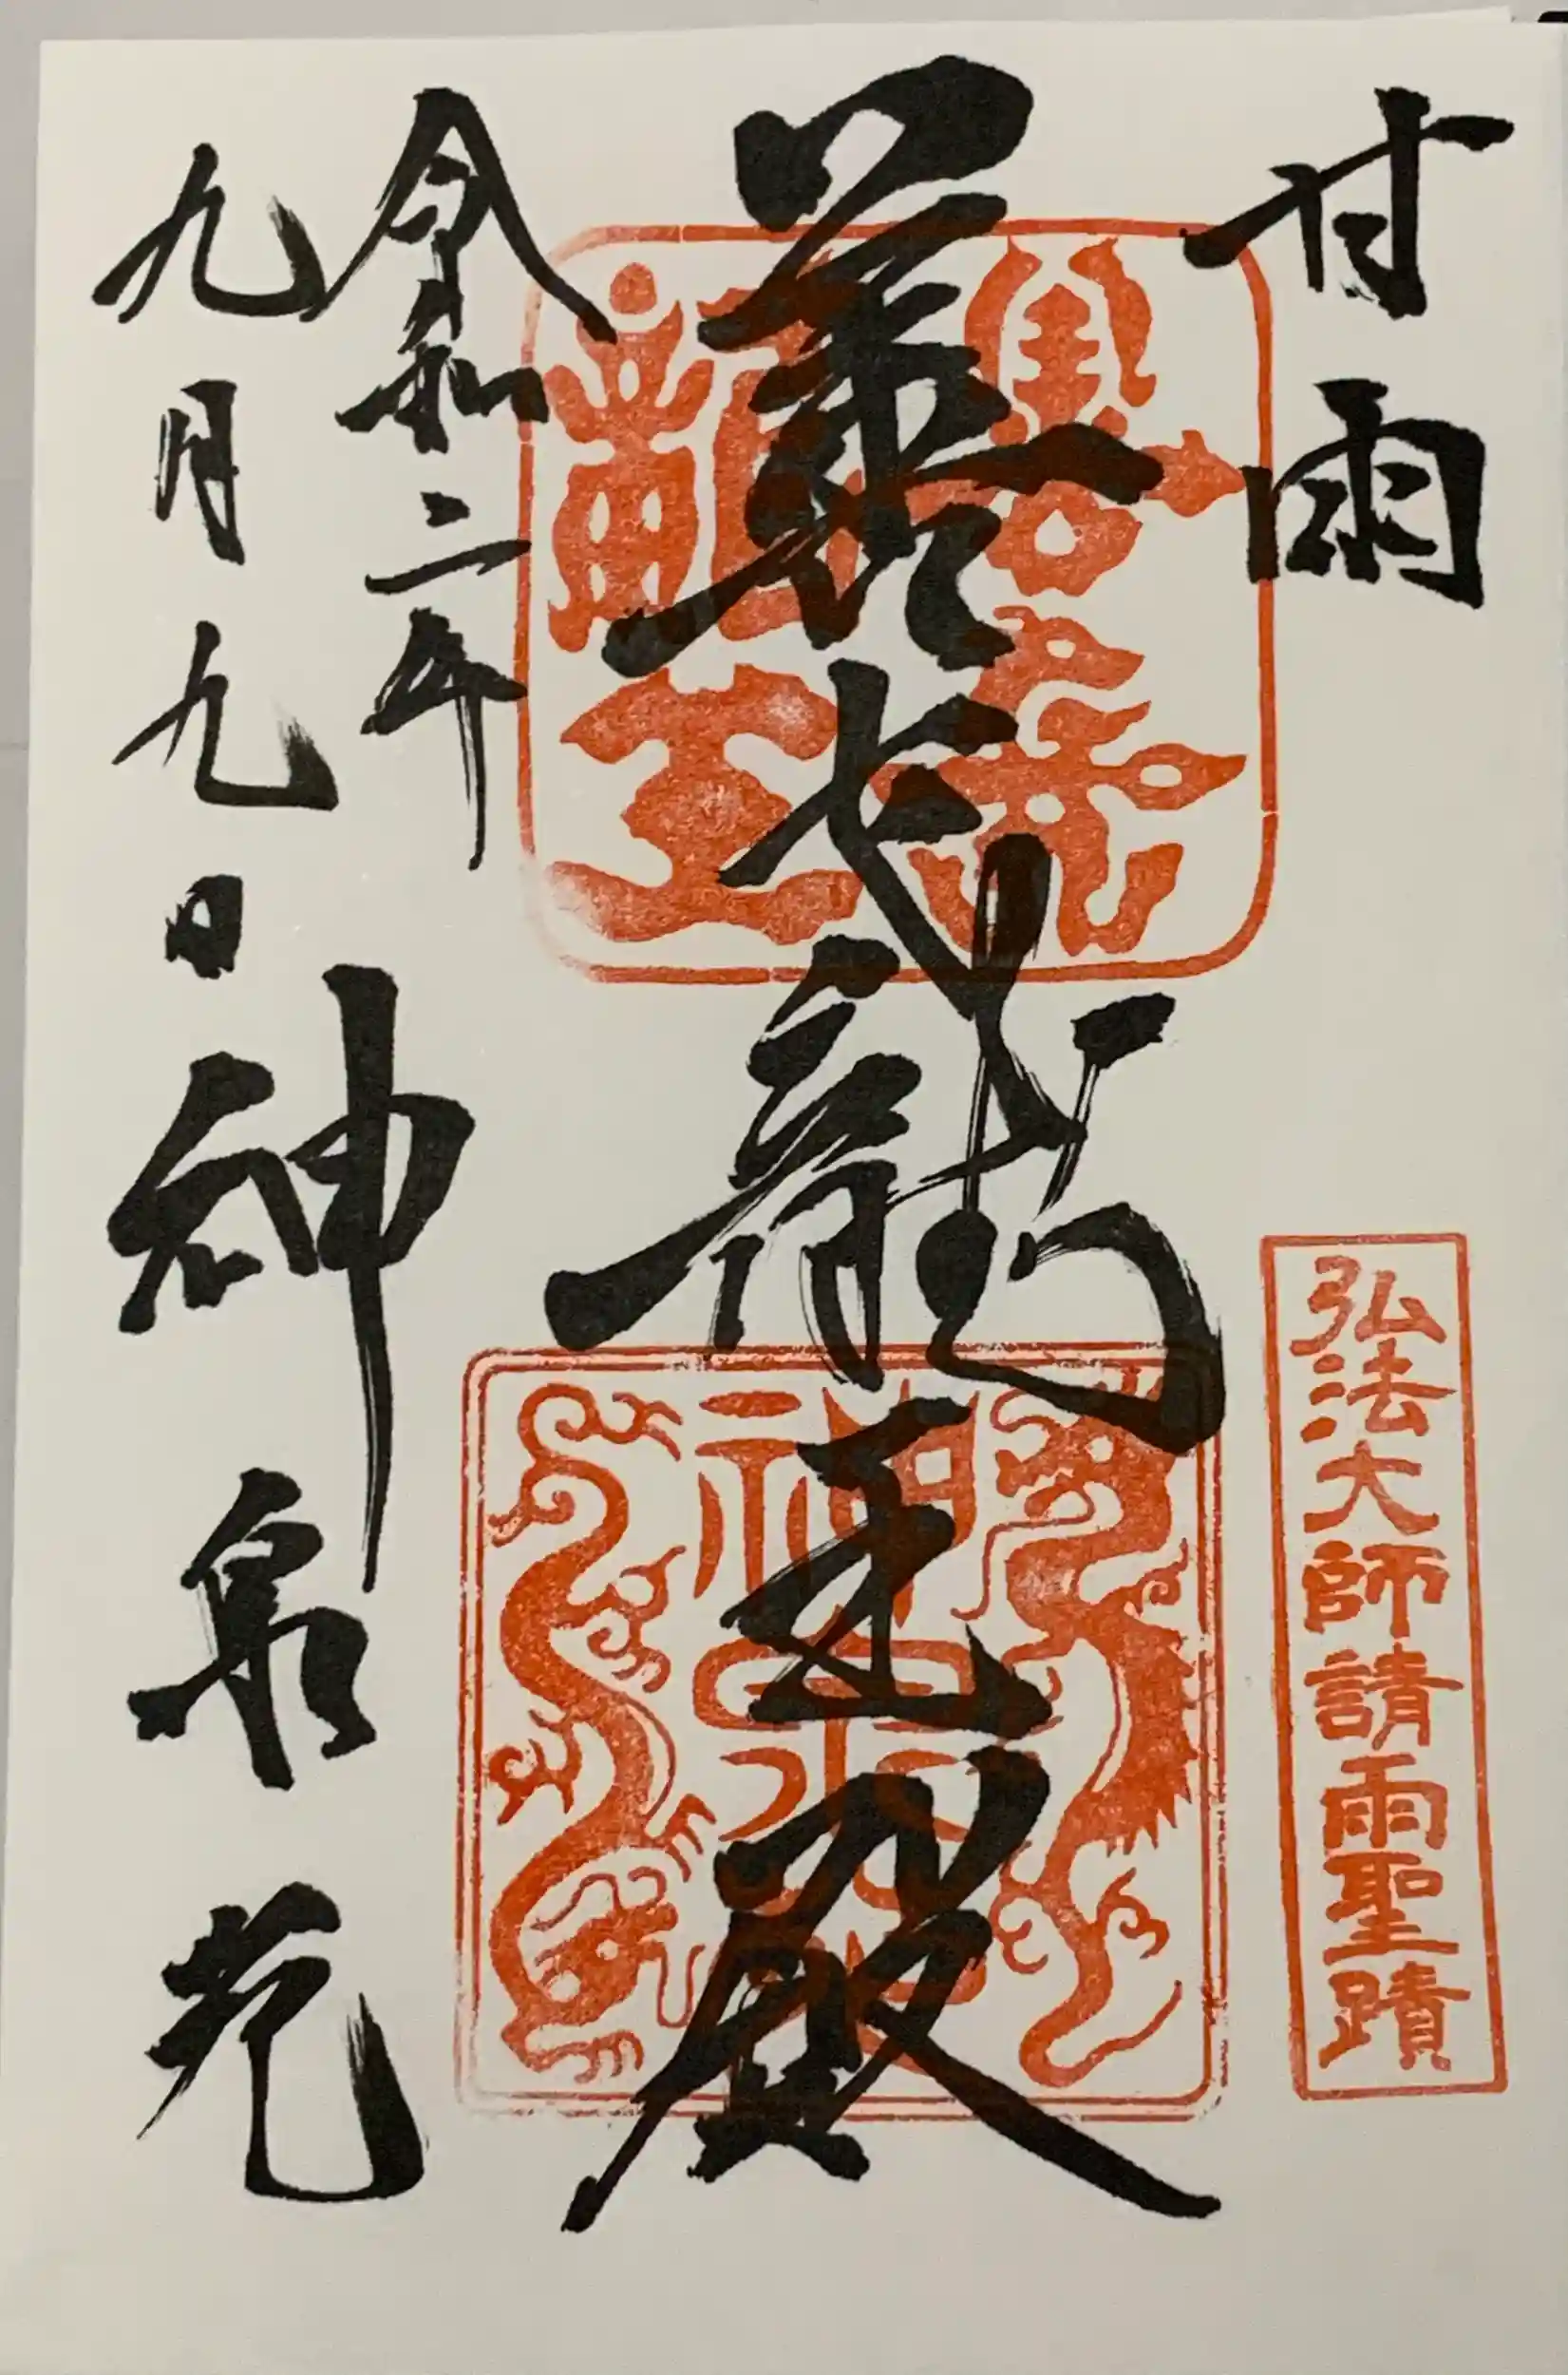 甘雨
弘法大師請雨聖蹟
善女龍王
善女龍王殿
神泉苑
令和二年
九月九日
神泉苑